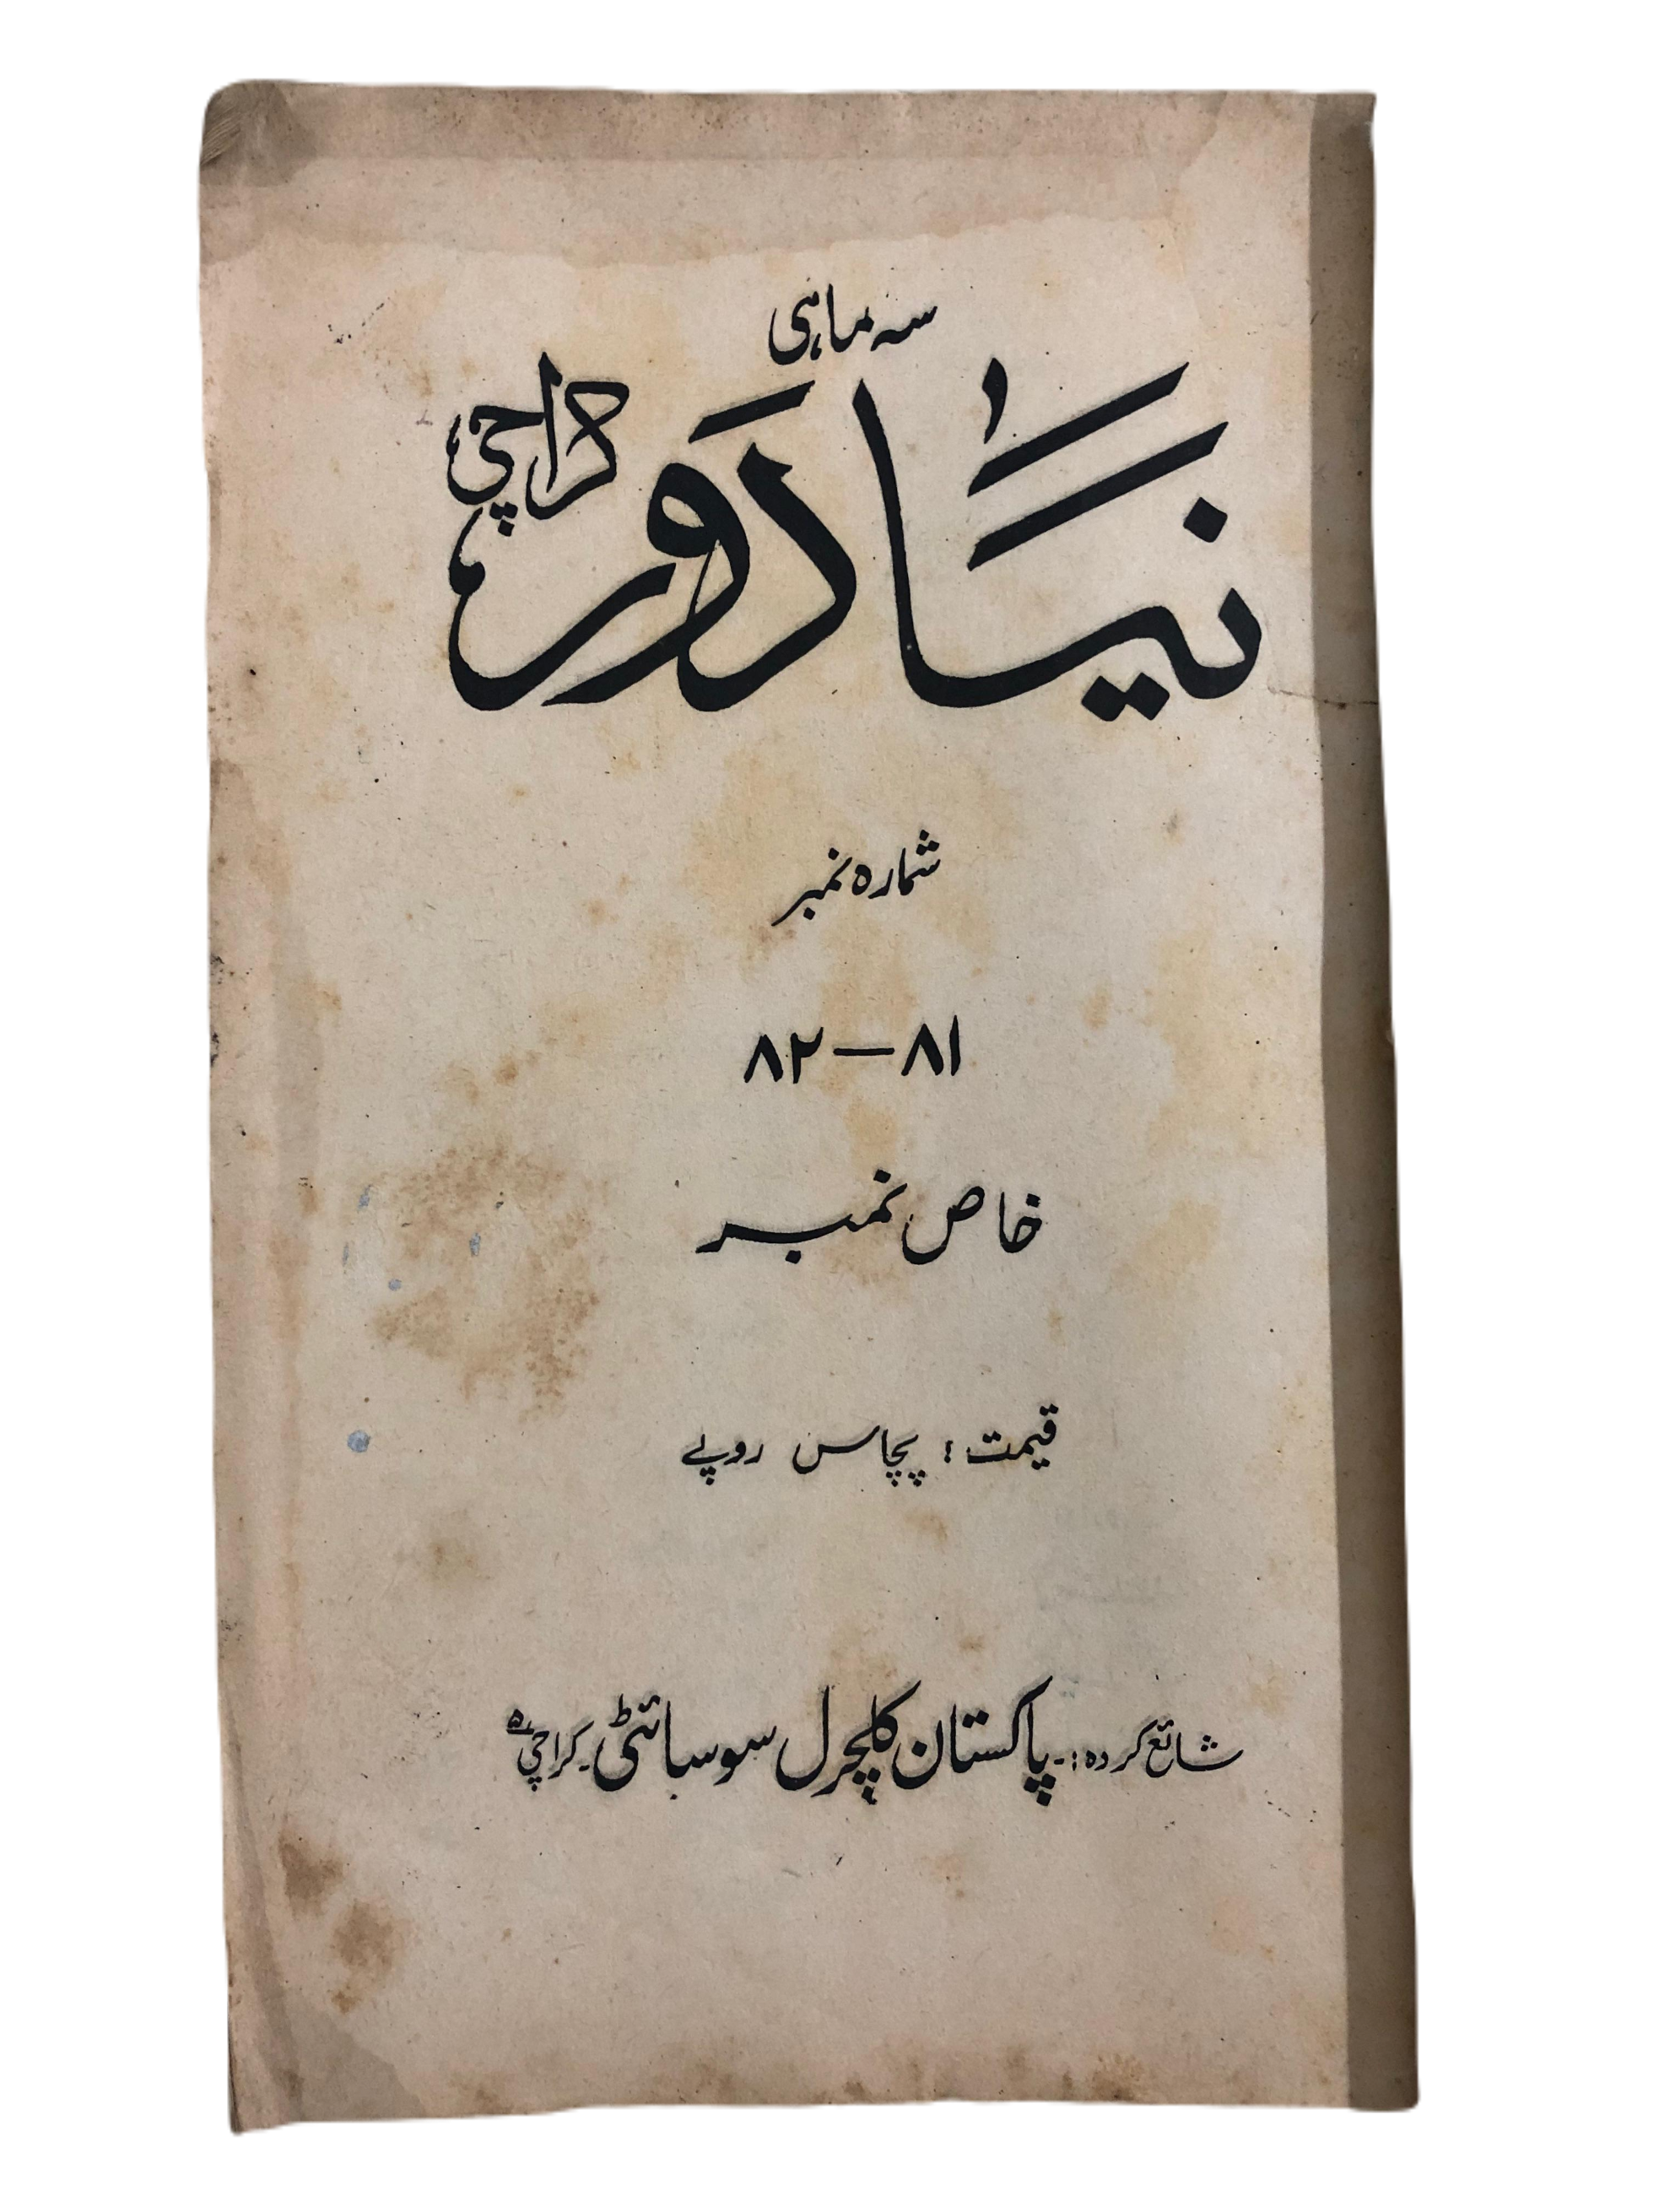 سہ ماہی
نیا دَور کراچی
شمارہ نمبر
۸۱ — ۸۲
خاص نمبر
قیمت : پچاس روپے
شائع کردہ :۔ پاکستان کلچرل سوسائٹی ۔ کراچی ۵